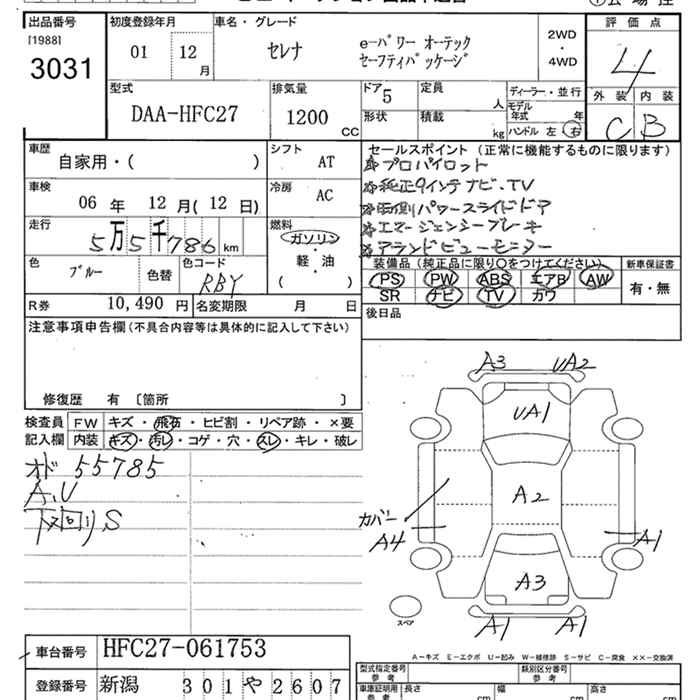 出品番号 初度登録年月 車名・グレード 評価点
[1988]
3031 01 12月 セレナ e-パワー オーテック セーフティパッケージ 2WD・4WD 4
型式 排気量 ドア 定員 ディーラー・並行 外装 内装
DAA-HFC27 1200CC 5 人 モデル年式 年 C B
形状 積載 kg ハンドル 左・右
車歴 シフト セールスポイント (正常に機能するものに限ります)
自家用・( ) AT ☆プロパイロット
車検 冷房 ☆純正9インチナビ、TV
06年 12月(12日) AC ☆両側パワースライドドア
走行 燃料 ☆エマージェンシーブレーキ
5万5千786km ガソリン・軽・油( ) ☆アラウンドビューモニター
色 色コード 装備品 (純正品に限り○をつけてください) 新車保証書
ブルー 色替 RBY PS PW ABS エアB AW 有・無
SR ナビ TV カワ
R券 10,490円 名変期限 月 日 後日品
注意事項申告欄 (不具合内容等は具体的に記入して下さい)
修復歴 有 〔箇所 〕
検査員記入欄 FW キズ・飛石・ヒビ割・リペア跡・×要
内装 キズ・汚レ・コゲ・穴・スレ・キレ・破レ
オド 55785
A、U
下回りS
A3 UA2
UA1
A2
カバー
A4 A1
A3
スペア
A1 A1
A-キズ E-エクボ U-凹み W-補修跡 S-サビ C-腐食 ××-交換済
車台番号 HFC27-061753
型式指定番号 参考 類別区分番号 参考
登録番号 新潟 301 や 2607
車庫証明用 参考 長さ cm 幅 cm 高さ cm